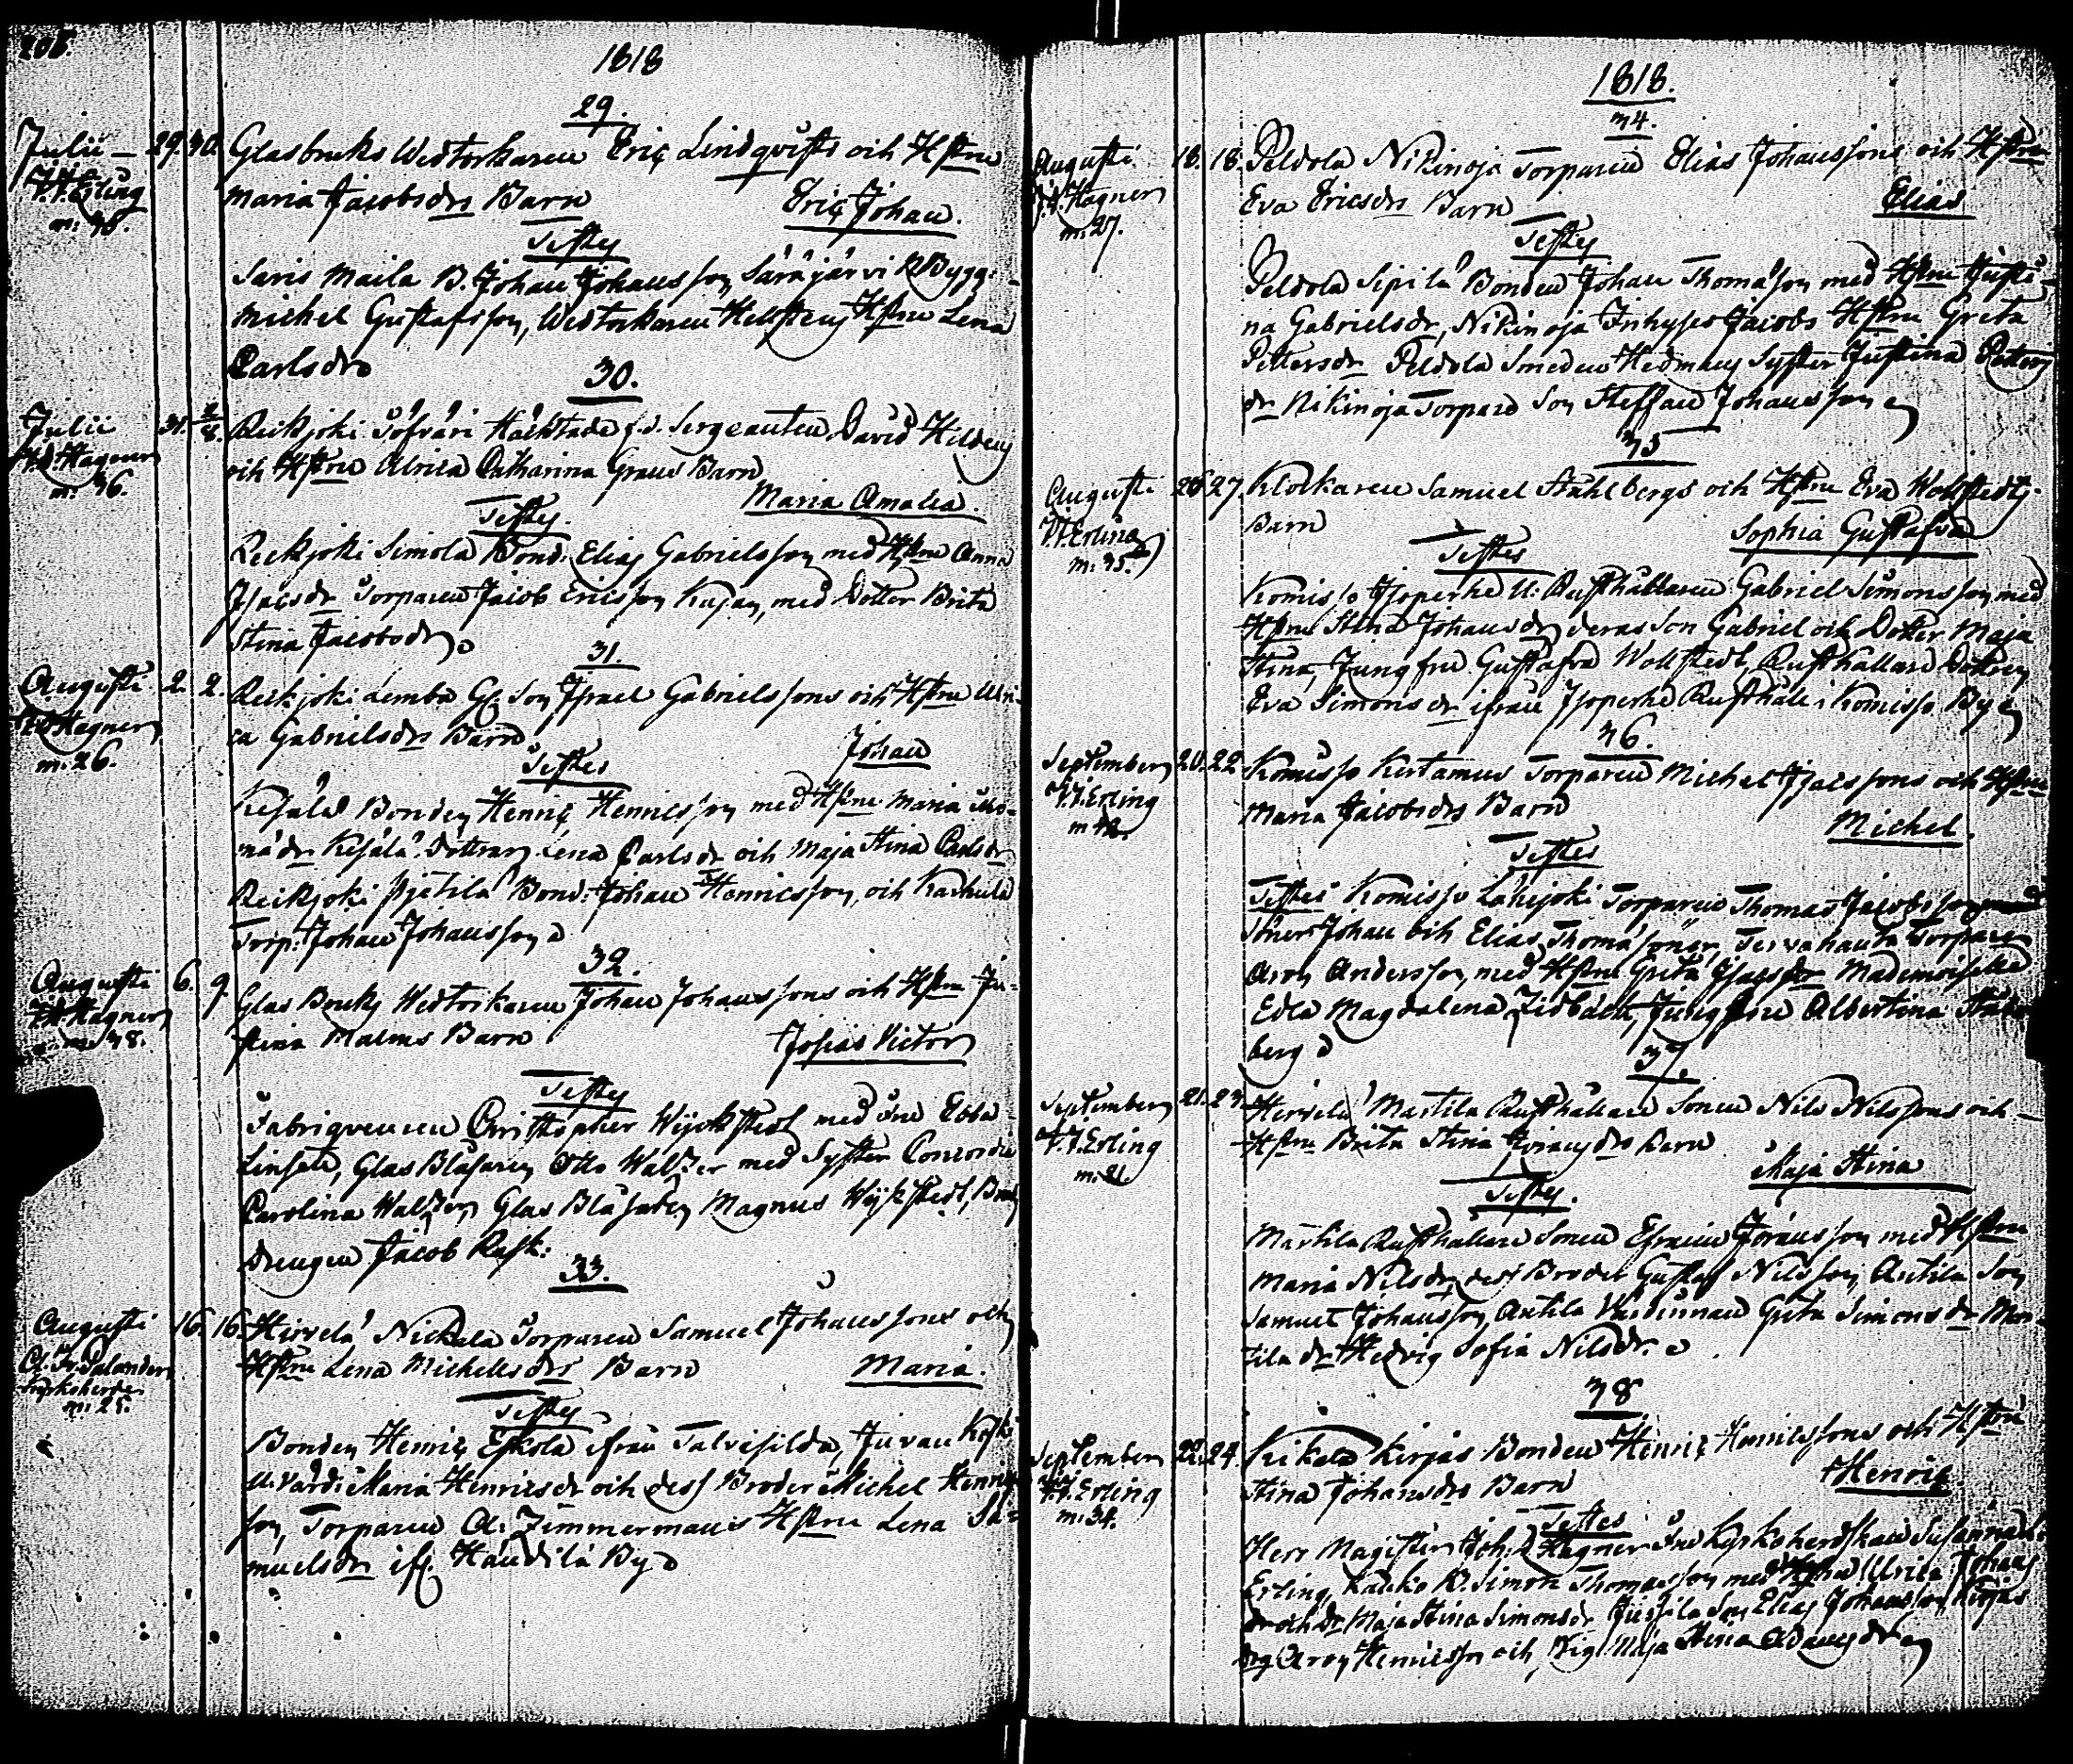 206.
1818
29.
Julii — 29. 30. Glasbruks Wedtorkaren Eric Lindqvists och Hstru
V.P. Erling
Maria Jacobsdrs Barn Eric Johan.
m: 36.
Testes
Saris Maila B. Johan Johansson, Särkjärvi N Bygg:
Michel Gustafsson, Wedtorkaren Hellstens Hstru Lena
Carlsdr
30.
Julii 31. 2/8. Reikjoki Söfväri Häcktade f.d. Sergeanten David Hildens
Hagner
och Hstru Ulrica Catharina Graus Barn
m. 36.
Maria Amalia.
Testes.
Reikjoki Simola Bond. Elias Gabrielsson med Hstru Anna
Isacsdr Torparen Jacob Ericsson Kujan, med Dotter Brita
Stina Jacobsdr
31.
Augusti 2. 2. Reikjoki Lemba Gl. Son Israel Gabrielssons och Hstru Ulri-
Hagner
ca Gabrielsdrs Barn
m. 26.
Johan
Testes
Kesälä Bonden Henric Henricsson med Hstru Maria Tho-
mädr Kesälä Dottrar Lena Carlsdr och Maja Stina Carlsdr
Reikjoki Pjätilä Bond: Johan Henricsson, och Karhula
Torp. Johan Johansson
32.
Augusti 6. 9. Glas Bruks Wedtorkaren Johan Johanssons och Hstru Ju-
Hagner
stina Malms Barn Josias Victor
m. 38.
Testes
Fabriqveuren Christopher Wijckstedt med Fru Ebba
Linsete, Glas Blåsaren Otto Walzer med Syster Concordia
Carolina Walzer, Glas Blåsaren Magnus Wijkstedt, Bruks
Drengen Jacob Rask.
33.
Augusti 16. 16. Hirvelä Nickala Torparen Samuel Johanssons och
Cl. Fr. Salander
Hstru Lena Michelsdrs Barn Maria.
Kyrkoherde
m: 25.
Testes
Bonden Henric Eskola ifrån Talvisilda, Juvan Koski
U. Värdi: Maria Henricsdr och dess Broder Michel Henrics
son, Torparen A. Zimmermans Hstru Lena Sa-
muelsdr if. Händilä By
1818.
34.
Augusti 18. 18. Peldola Nikinoja Torparen Elias Johanssons och Hstru
Hagner
Eva Ericsdrs Barn Elias
m. 27.
Testes
Peldola Sipilä Bonden Johan Thomasson med Hstru Justi-
na Gabrielsdr, Nikinoja Inhyses Jacobs Hstru Greta
Pettersdr Peldola Smeden Hedmans Syster Justina Petters
dr Nikinoja Torpare Son Steffan Johansson
35
Augusti 26 27. Klockaren Samuel Ståhlbergs och Hstru Eva Wollstedts
V.P. Erling
Barn Sophia Gustafva
m. 35.
Testes
Komisso Isoperhe U. Rusthållaren Gabriel Simonsson med
Hstru Stina Johansdr, deras Son Gabriel och Dotter Maja
Stina, Jungfru Gustafva Wollstedt, Rusthållare Dottren
Eva Simonsdr ifrån Isoperhe Rusthåll i Komisso By
36.
September 20. 22 Komisso Kertamus Torparen Michel Isacssons och Hstru
V.P. Erling
Maria Jacobsdrs Barn
Michel.
Testes
Testes Komisso Lähijoki Torparen Thomas Jacobsson
Söner Johan och Elias Thomä söner, Tervahauta Torparen
Aron Andersson, med Hstru Greta Isacsdr Mademoiselle
Edla Magdalena Zidbäck, Jungfru Albertina Ståhl
berg
37.
September 21. 23. Hirvelä Martila Rusthållare Sonen Nils Nilssons och
V.P. Erling
Hstru Brita Stina Göransdrs Barn
m. 21.
Maja Stina
Testes.
Martila Rusthållare Sonen Efraim Göransson med Hstru
Maria Nilsdr, dess Broder Gustaf Nilsson, Antila Son
Samuel Johansson, Antila Värdinnan Greta Simonsdr Mar-
tila dr Hedvig Sofia Nilsdr.
38
September 22. 24. Kikala Kirjas Bonden Henric Henricssons och Hstru
V.P. Erling
Stina Johansdrs Barn Henric
m. 34.
Testes
Herr Magister Joh: Hagner Fru Kyrkoherdskan Susanna
Erling, Kaukko B. Simon Thomasson med Hstru Ulrica Johans
dr och Dr Maja Stina Simonsdr Jussila Son Elias Johansson, Kirjas
Dr. Aron Henricsson och Pig. Maja Stina Adamsdr